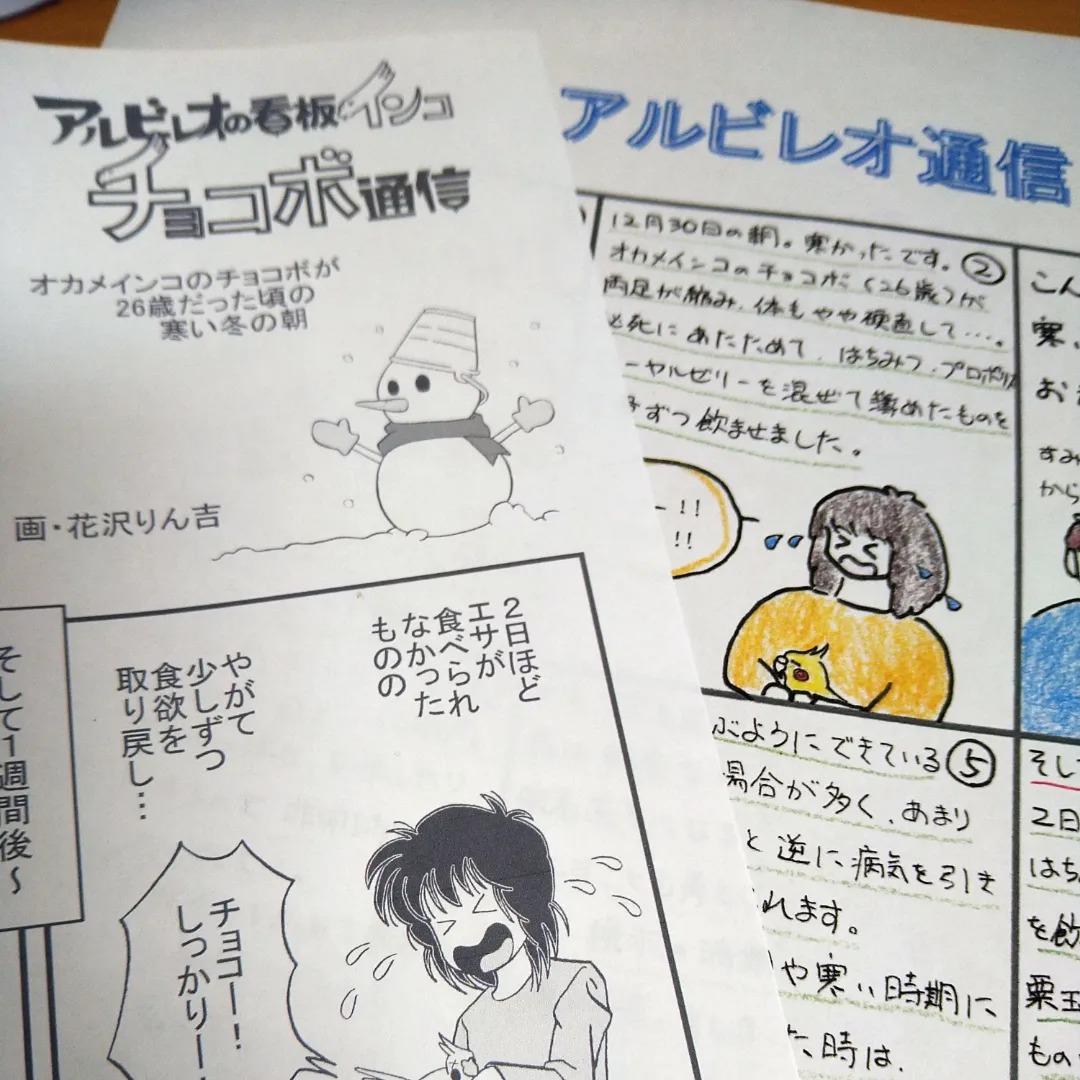 アルビレオの看板インコ
チョコボ通信
オカメインコのチョコボが
26歳だった頃の
寒い冬の朝
画・花沢りん吉
2日ほど
エサが
食べられ
なかった
ものの
やがて
少しずつ
食欲を
取り戻し…
そして1週間後～
チョコー!
しっかりー
アルビレオ通信
12月30日の朝。寒かったです。②
オカメインコのチョコボ(26歳)が
両足が縮み、体もやや硬直して‥‥。
必死にあたためて、はちみつ・プロポリ
ーヤルゼリーを混ぜて薄めたものを
ずつ飲ませました。
ー!!
!!
こん
寒い
お
すみ
から
ぶようにできている⑤
場合が多く、あまり
と逆に病気を引き
れます。
や寒い時期に
た時は、
そして
2日
はち
を飲
粟玉
もの